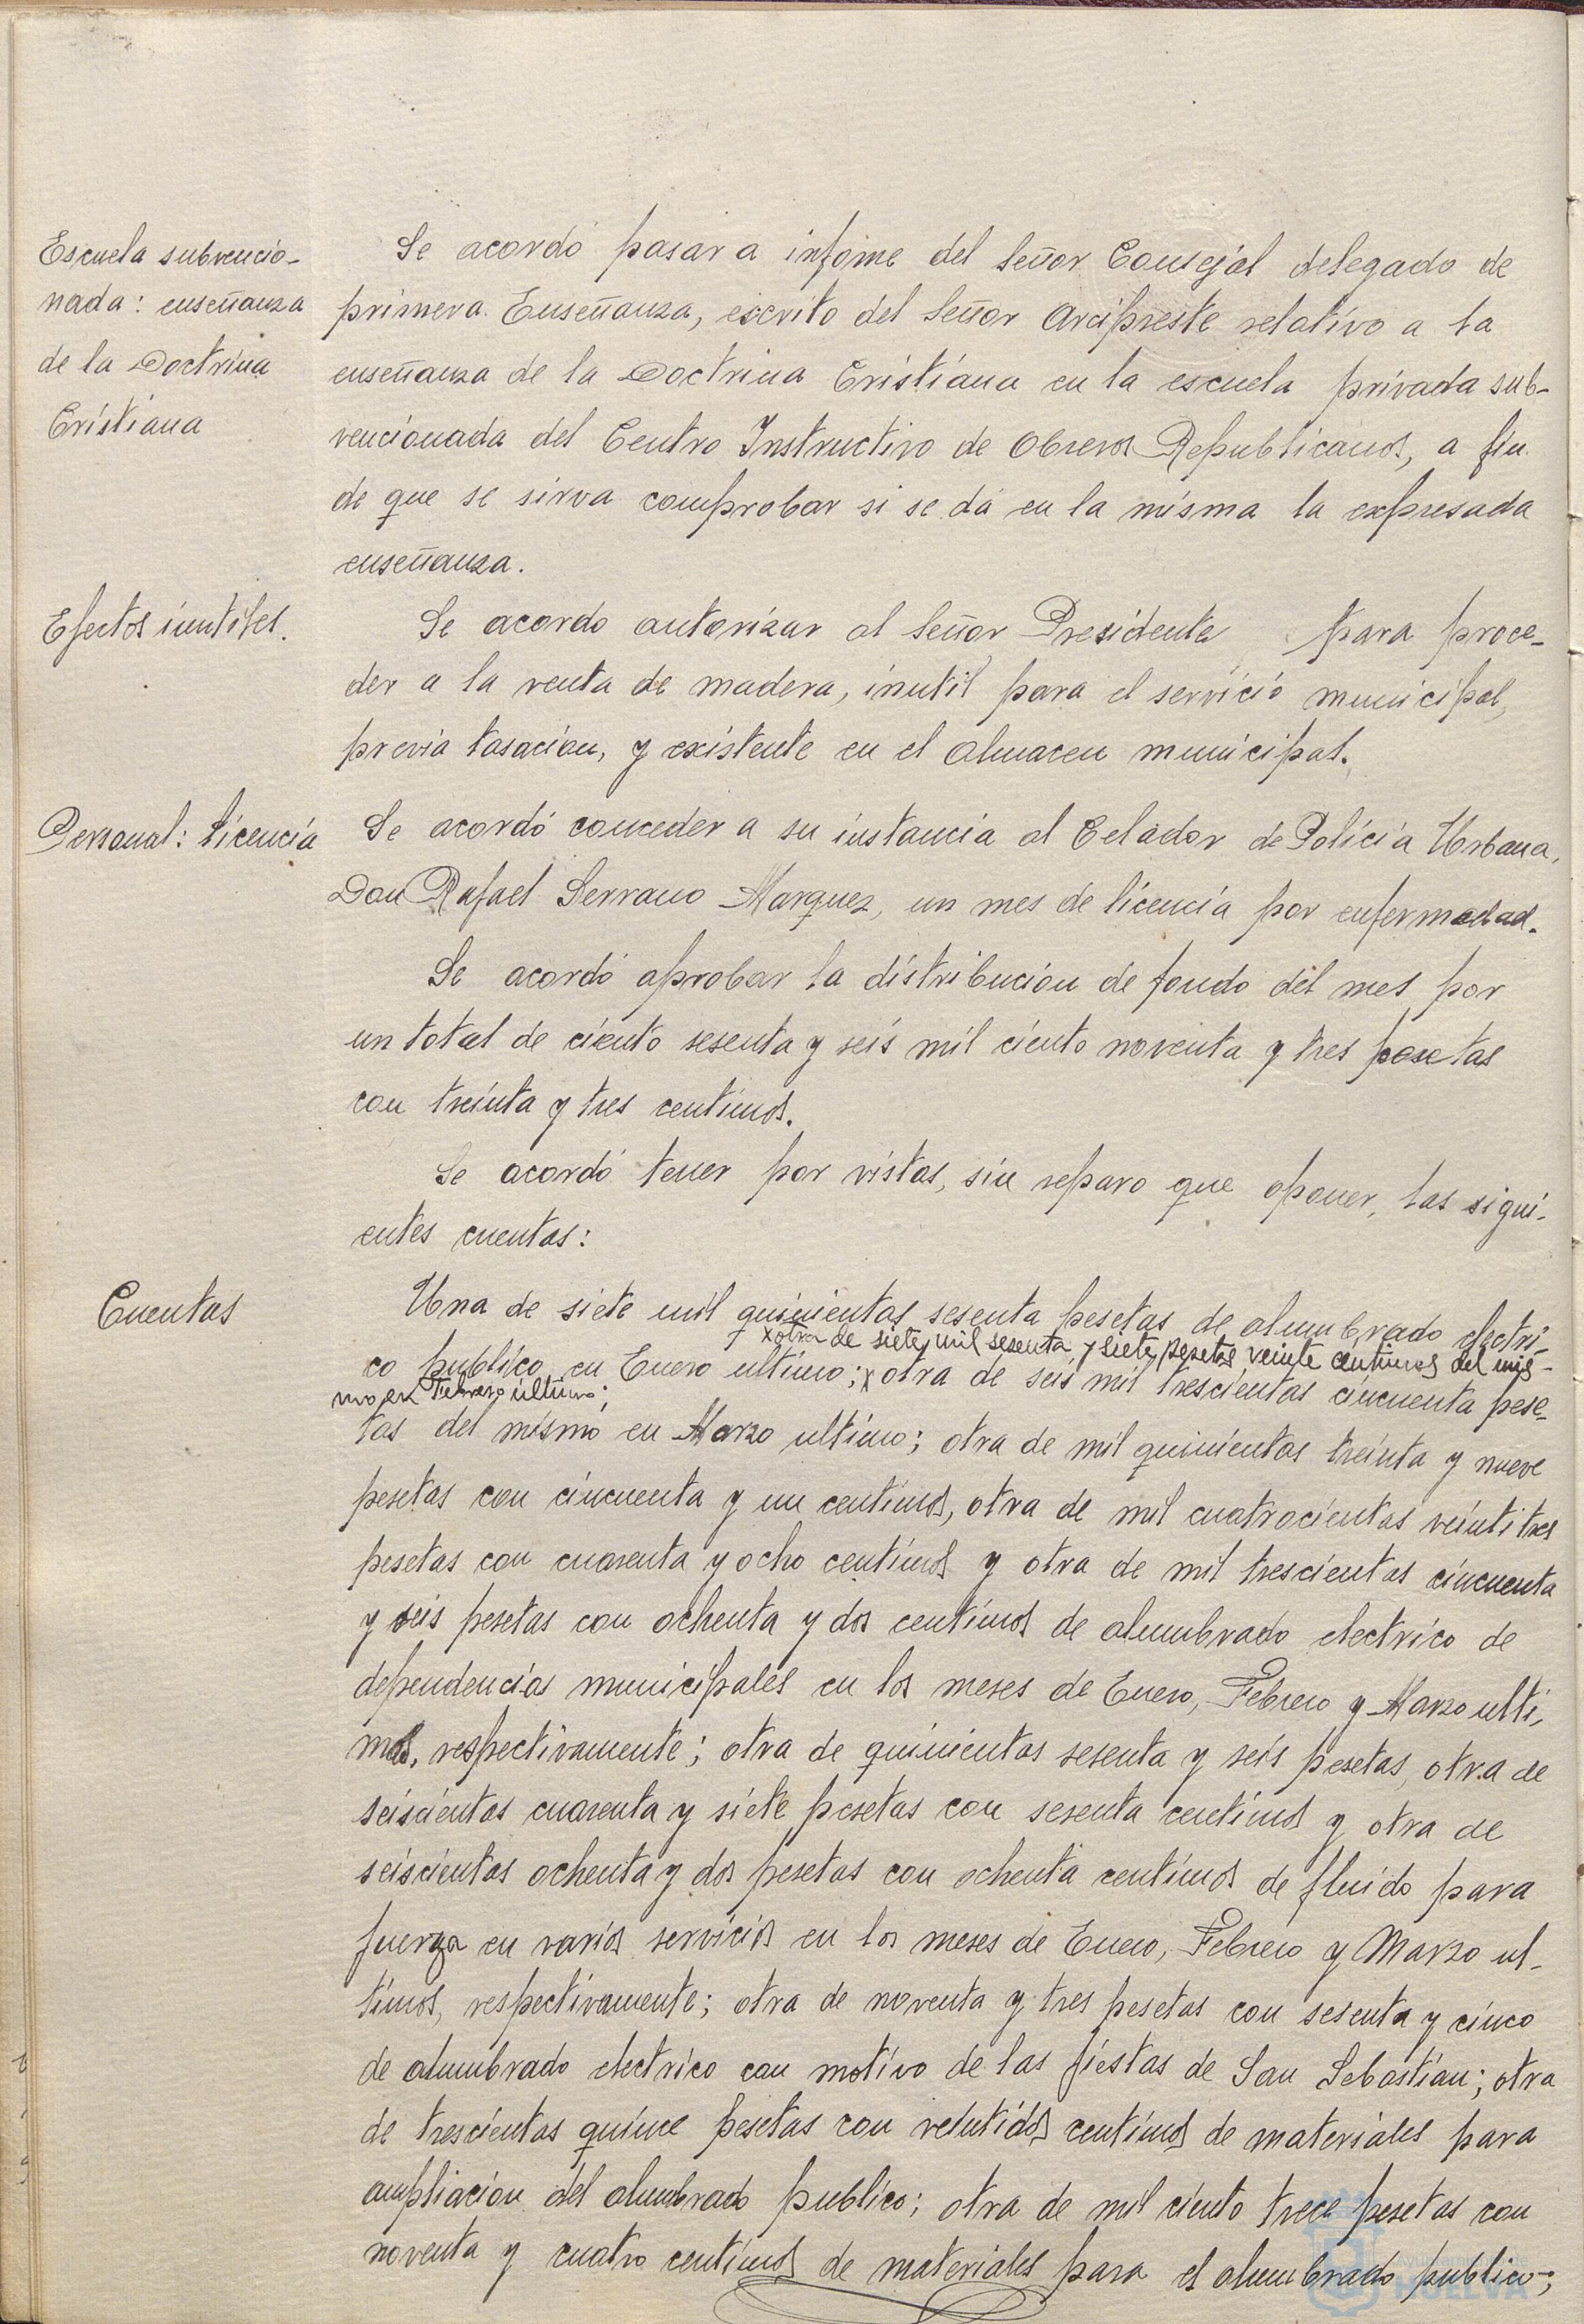 Escuela subvencio-
nada: enseñanza
de la Doctrina
Cristiana
Se acordó pasar a infome del Señor Consejal delegado de
primera Enseñanza, escrito del Señor Arcipreste relativo a la
enseñanza de la Doctrina Cristiana en la escuela privada sub-
vencionada del Centro Instructivo de Obreros Republicanos, a fin
de que se sirva comprobar si se dá en la misma la expresada
enseñanza.
Efectos inutiles.
Se acordo autorizar al Señor Presidente para proce-
der a la venta de madera, inutil para el servicio municipal,
previa tasacion, y existente en el almacen municipal.
Personal: licencia
Se acordó conceder a su instancia al Celador de Policia Urbana,
Don Rafael Serrano Marquez, un mes de licencia por enfermedad.
Se acordó aprobar la distribucion de fondo del mes por
un total de ciento sesenta y seis mil ciento noventa y tres pesetas
con treinta y tres centimos.
Se acordó tener por vistas, sin reparo que oponer, las sigui-
entes cuentas:
Cuentas
Una de siete mil quinientas sesenta pesetas de alumbrado electri-
x otra de siete mil sesenta y siete pesetas veinte centimos del mis-
co publico en Enero ultimo; x otra de seis mil trescientas cincuenta pese-
mo en Febrero ultimo;
tas del mismo en Marzo ultimo; otra de mil quinientas treinta y nueve
pesetas con cincuenta y un centimos, otra de mil cuatrocientas veintitres
pesetas con cuarenta y ocho centimos y otra de mil trescientas cincuenta
y seis pesetas con ochenta y dos centimos de alumbrado electrico de
dependencias municipales en los meses de Enero, Febrero y Marzo ulti-
mos, respectivamente; otra de quinientas sesenta y seis pesetas, otra de
seiscientas cuarenta y siete pesetas con sesenta centimos y otra de
seiscientas ochenta y dos pesetas con ochenta centimos de fluido para
fuerza en varios servicios en los meses de Enero, Febrero y Marzo ul-
timos, respectivamente; otra de noventa y tres pesetas con sesenta y cinco
de alumbrado electrico con motivo de las fiestas de San Sebastian; otra
de trescientas quince pesetas con veintidos centimos de materiales para
ampliacion del alumbrado publico; otra de mil ciento trece pesetas con
noventa y cuatro centimos de materiales para el alumbrado publico;
HUELVA